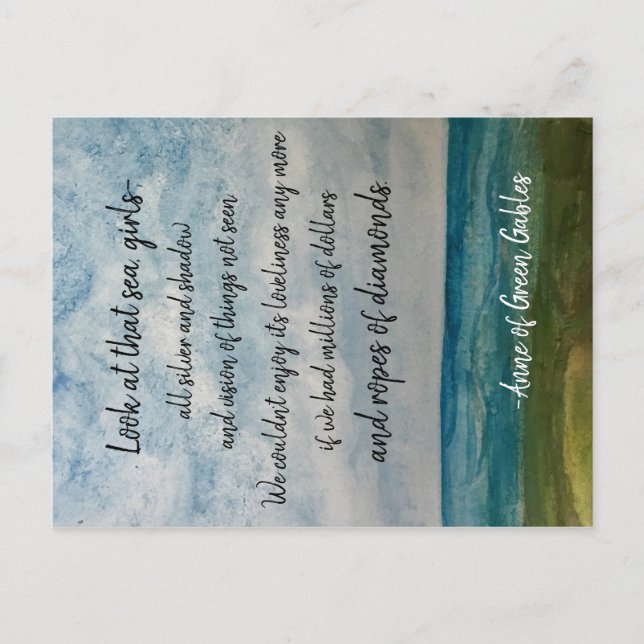 Look at that sea, girls-
all silver and shadow
and vision of things not seen.
We couldn't enjoy its loveliness any more
if we had millions of dollars
and ropes of diamonds.
-Anne of Green Gables